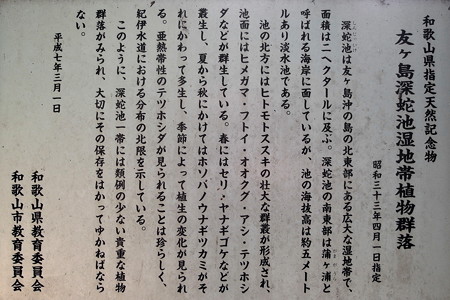 和歌山県指定天然記念物
友ヶ島深蛇池湿地帯植物群落
昭和三十三年四月一日指定
深蛇池は友ヶ島沖の島の北東部にある広大な湿地帯で、
面積は二ヘクタールに及ぶ。深蛇池の南東部は蒲ヶ浦と
呼ばれる海岸に面しているが、池の海抜高は約五メート
ルあり淡水池である。
池の北方にはヒトモトススキの壮大な群叢が形成され、
池面にはヒメガマ・フトイ・オオクグ・アシ・テツホシ
ダなどが群生している。春にはセリ・ヤナギゴケなどが
叢生し、夏から秋にかけてはホソバノヤナギツカミがそ
れにかわって多生し、季節によって植生の変化が見られ
る。亜熱帯性のテツホシダが見られることは珍らしく、
紀伊水道における分布の北限を示している。
このように、深蛇池一帯には類例の少ない貴重な植物
群落がみられ、大切にその保存をはかってゆかねばなら
ない。
平成七年三月一日
和歌山県教育委員会
和歌山市教育委員会